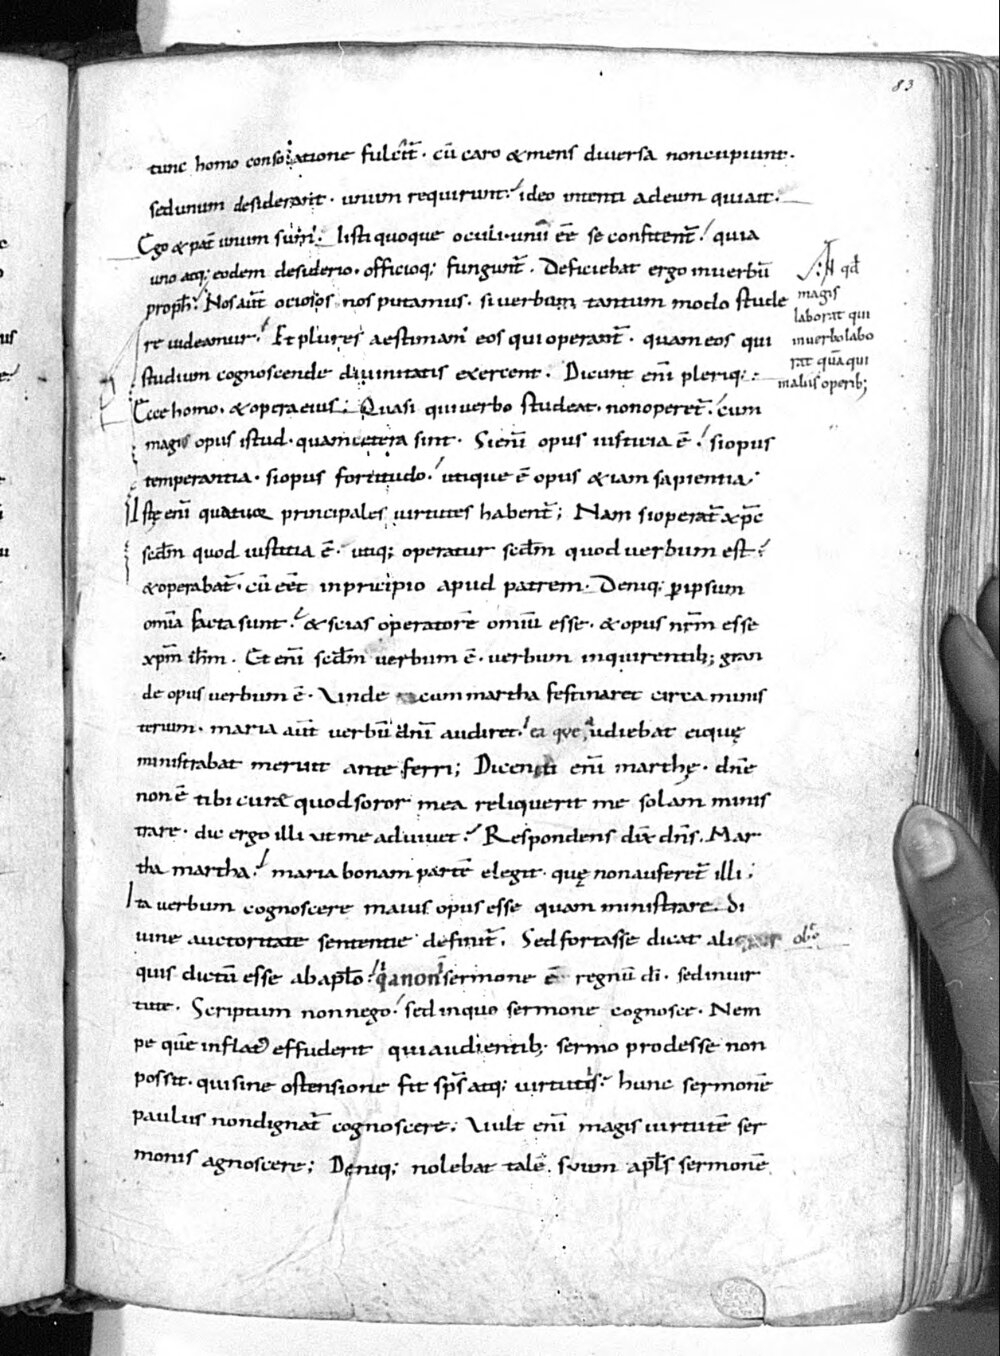 83
tunc homo consolatione fulcit̄. cū caro &mens diuersa noncupiunt.
sedunum desiderant. unum requirunt. ideo intenti adeum quiait.
Ego & pat̄ unum sum̄. Isti quoque oculi. unū eē se confitent̄. quia
uno atq; eodem desiderio. officioq; fungunt̄. Deficiebat ergo inuerbū
proph̄. Nos aūt ociosos nos putamus. si uerbum tantum modo stude
re uideamur. Et plures aestimam̄ eos qui operant̄. quam eos qui
studium cognoscende diuinitatis exercent. Dicunt enī pleriq;
Ecce homo. & opera eius; Quasi qui uerbo studeat. non operet̄. cum
magis opus istud. quam cetera sint. Si enī opus iusticia ē. si opus
temperantia. si opus fortitudo. utique ē opus & iam sapientia.
Istę enī quatuor principales uirtutes habent̄; Nam si operat̄ xp̄c
sedm̄ quod iustitia ē. utiq; operatur sedm̄ quod uerbum est.
& operabat̄. cū eēt in pricipio apud patrem. Deniq; p ipsum
omīa facta sunt. & scias operatorē omiū esse. & opus nr̄m esse
xp̄m ih̄m. Et enī sedm̄ uerbum ē. uerbum inquirentib; gran
de opus uerbum ē. Unde cum martha festinaret circa minis
terium. maria aūt uerbū dnī audiret. ea que audiebat eiquę
ministrabat meruit ante ferri; Dicenti enī marthę. dn̄e
non ē tibi curae quod soror mea reliquerit me solam minis
trare. dic ergo illi ut me adiuuet. Respondens dix̄ dn̄s. Mar
tha martha. maria bonam partē elegit. quę non auferet̄ illi;
Ita uerbum cognoscere maius opus esse quam ministrare. di
uine auctoritate sententie definit̄. Sed fortasse dicat ali
quis dictū esse ab apl̄o. qa non sermone ē regnū dī. sed in uir
tute. Scriptum non nego. sed in quo sermone cognosce. Nem
pe quē inflatꝰ effuderit qui audientib; sermo prodesse non
possit. qui sine ostensione fit sp̄s atq; uirtutis. hunc sermonē
paulus non dignat̄ cognoscere; Uult enī magis uirtutē ser
monis agnoscere; Deniq; nolebat talē suum apl̄s sermonē
qd̄
magis
laborat qui
inuerbo labo
rat quā qui
in aliis operib;